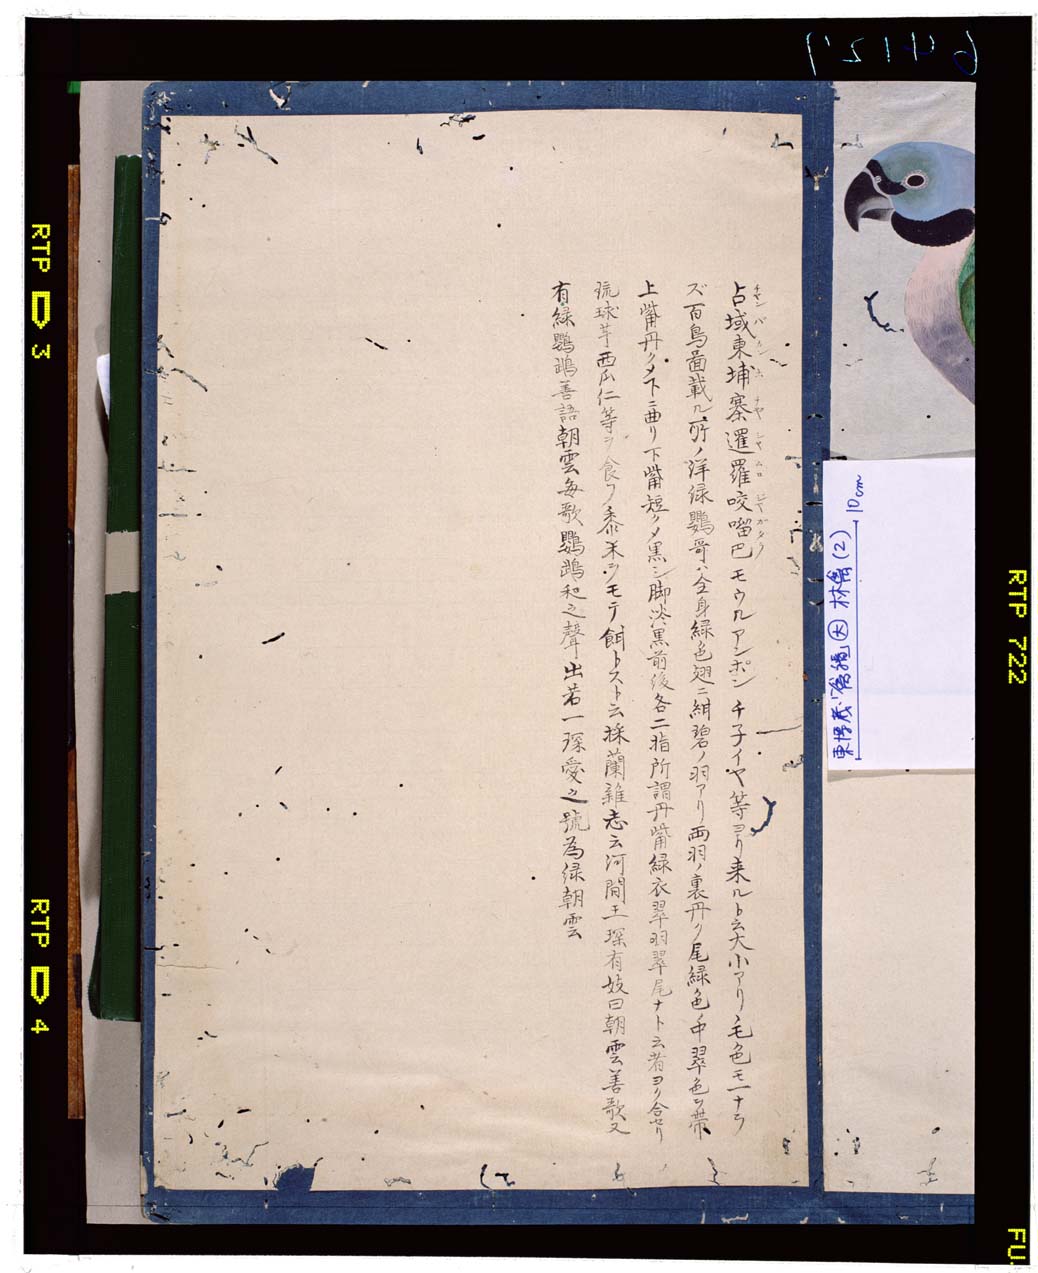 占城東埔寨暹羅咬𠺕巴モウルアンポンチ子イヤ等ヨリ来ルト云大小アリ毛色モ一ナラ
チヤンパ カンホチヤ シヤムロ ジヤガタラ
ズ百鳥圖載ル所ノ洋緑鸚哥ハ全身緑色翅ニ紺碧ノ羽アリ両羽ノ裏丹ク尾緑色ノ中翠色ヲ帯
上觜丹クメ下ニ曲リ下觜短クメ黒シ脚淡黒前後各二指所謂丹觜緑衣翠羽翠尾ナト云者ヨク合セリ
琉球芋西瓜仁等ヲ食フ黍米ヲモテ餌トスト云採蘭雜志云河間王琛有妓曰朝雲善歌又
有緑鸚鵡善語朝雲毎歌鸚鵡和之聲出若一琛愛之號為緑朝雲
東博蔵 禽譜 大 林禽 (2)
10cm
64127
RTP 3
RTP 4
RTP 722
FU